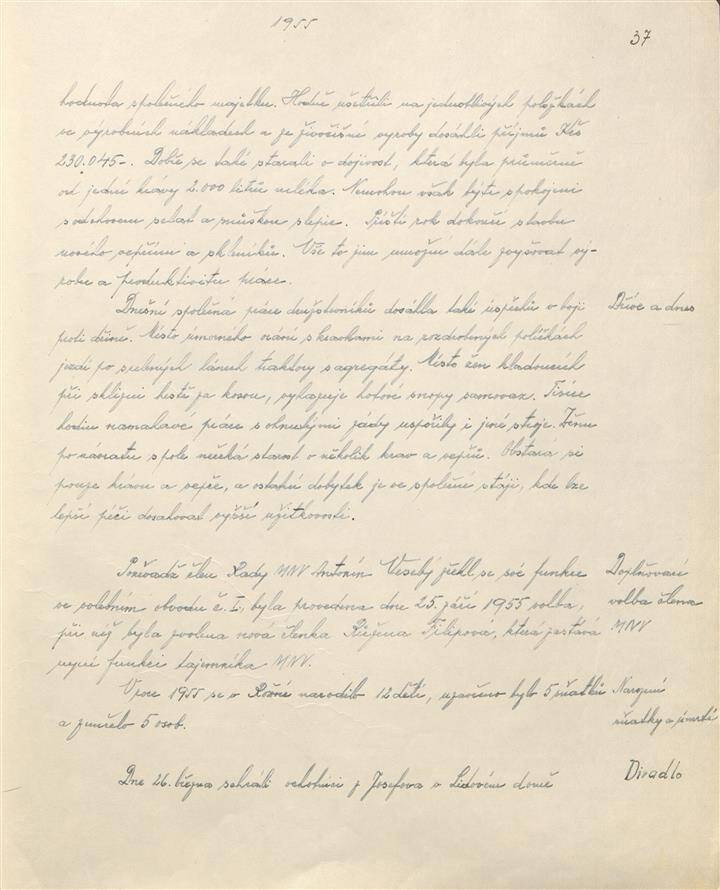 1955
37
hodnota společného majetku. Hodně ušetřili na jednotlivých položkách
ve výrobních nákladech a ze živočišné výroby dosáhli příjmů Kčs
230.045-. Dobře se také starali o dojivost, která byla průměrně
od jedné krávy 2.000 litrů mléka. Nemohou však býti spokojeni
s odchovem selat a snůškou slepic. Příští rok dokončí stavbu
nového vepřínu a skleníků. Vše to jim umožní dále zvyšovat vý-
robu a produktivitu práce.
Dnešní společná práce družstevníků dosáhla také úspěchů v boji
proti dřině. Místo úmorného orání s kravkami na rozdrobených políčkách
jezdí po scelených lánech traktory s agregáty. Místo žen kladoucích
při sklizni hrstě za kosou, vyhazuje hotové snopy samovaz. Tisíce
hodin namahavé práce s ohnutými zády uspořily i jiné stroje. Ženu
po návratu s pole nečeká starost o několik krav a vepřů. Obstará si
pouze kravu a vepře, a ostatní dobytek je ve společné stáji, kde lze
lepší péčí dosahovat vyšší užitkovosti.
Dříve a dnes
Poněvadž člen Rady MNV Antonín Veselý zřekl se své funkce
ve volebním obvodu č. I, byla provedena dne 25. září 1955 volba,
při níž byla zvolena nová členka Růžena Filipová, která zastává
nyní funkci tajemníka MNV.
Doplňovací
volba člena
MNV
V roce 1955 se v Rožné narodilo 12 dětí, uzavřeno bylo 5 sňatků
a zemřelo 5 osob.
Narození
sňatky a úmrtí
Dne 26. března sehráli ochotníci z Josefova v Lidovém domě
Divadlo